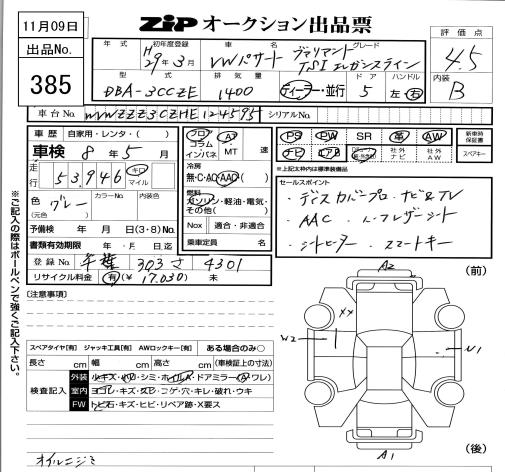 11月09日
出品No.
385
ZIP オークション出品票
評価点
4.5
内装
B
年式 初年度登録 車名 グレード
H29年3月 VWパサート ヴァリアント TSI エレガンスライン
型式 排気量 ドア ハンドル
DBA-3CCZE 1400 ディーラー・並行 5 左・右
車台No. WVWZZZ3CZHE124595 シリアルNo.
車歴 自家用・レンタ・( )
車検 8年5月
走行 53,946 キロ マイル
色 グレー
(元色)
カラーNo. 内装色
予備検 年 月 日(3・8)No.
書類有効期限 年・月・日迄
登録No. 303 さ 4301
リサイクル料金 有(¥ 17.030) 未
フロア コラム インパネ
A MT 速
冷房
無・C・AC・AAC
燃料
ガソリン・軽油・電気・その他( )
Nox 適合・非適合
乗車定員 名
PS PW SR 革 AW
ナビ エアB 社外ナビ 社外AW
新車時保証書
スペアキー
※上記太枠内は標準装備品
セールスポイント
・ディスカバープロ・ナビ&TV
・AAC ・レザーシート
・シートヒーター ・スマートキー
※ご記入の際はボールペンで強くご記入下さい。
[注意事項]
スペアタイヤ[有] ジャッキ工具[有] AWロックキー[有] ある場合のみ○
長さ cm 幅 cm 高さ cm (車検証上の寸法)
検査記入
外装 小キズ・凹・シミ・ホイルA・ドアミラー(A・ワレ)
室内 ヨゴレ・キズ・スレ・コゲ・穴・キレ・破れ・ウキ
FW トビ石・キズ・ヒビ・リペア跡・X要ス
オイルニジミ
(前)
A2
XX
W2
W1
A1
(後)